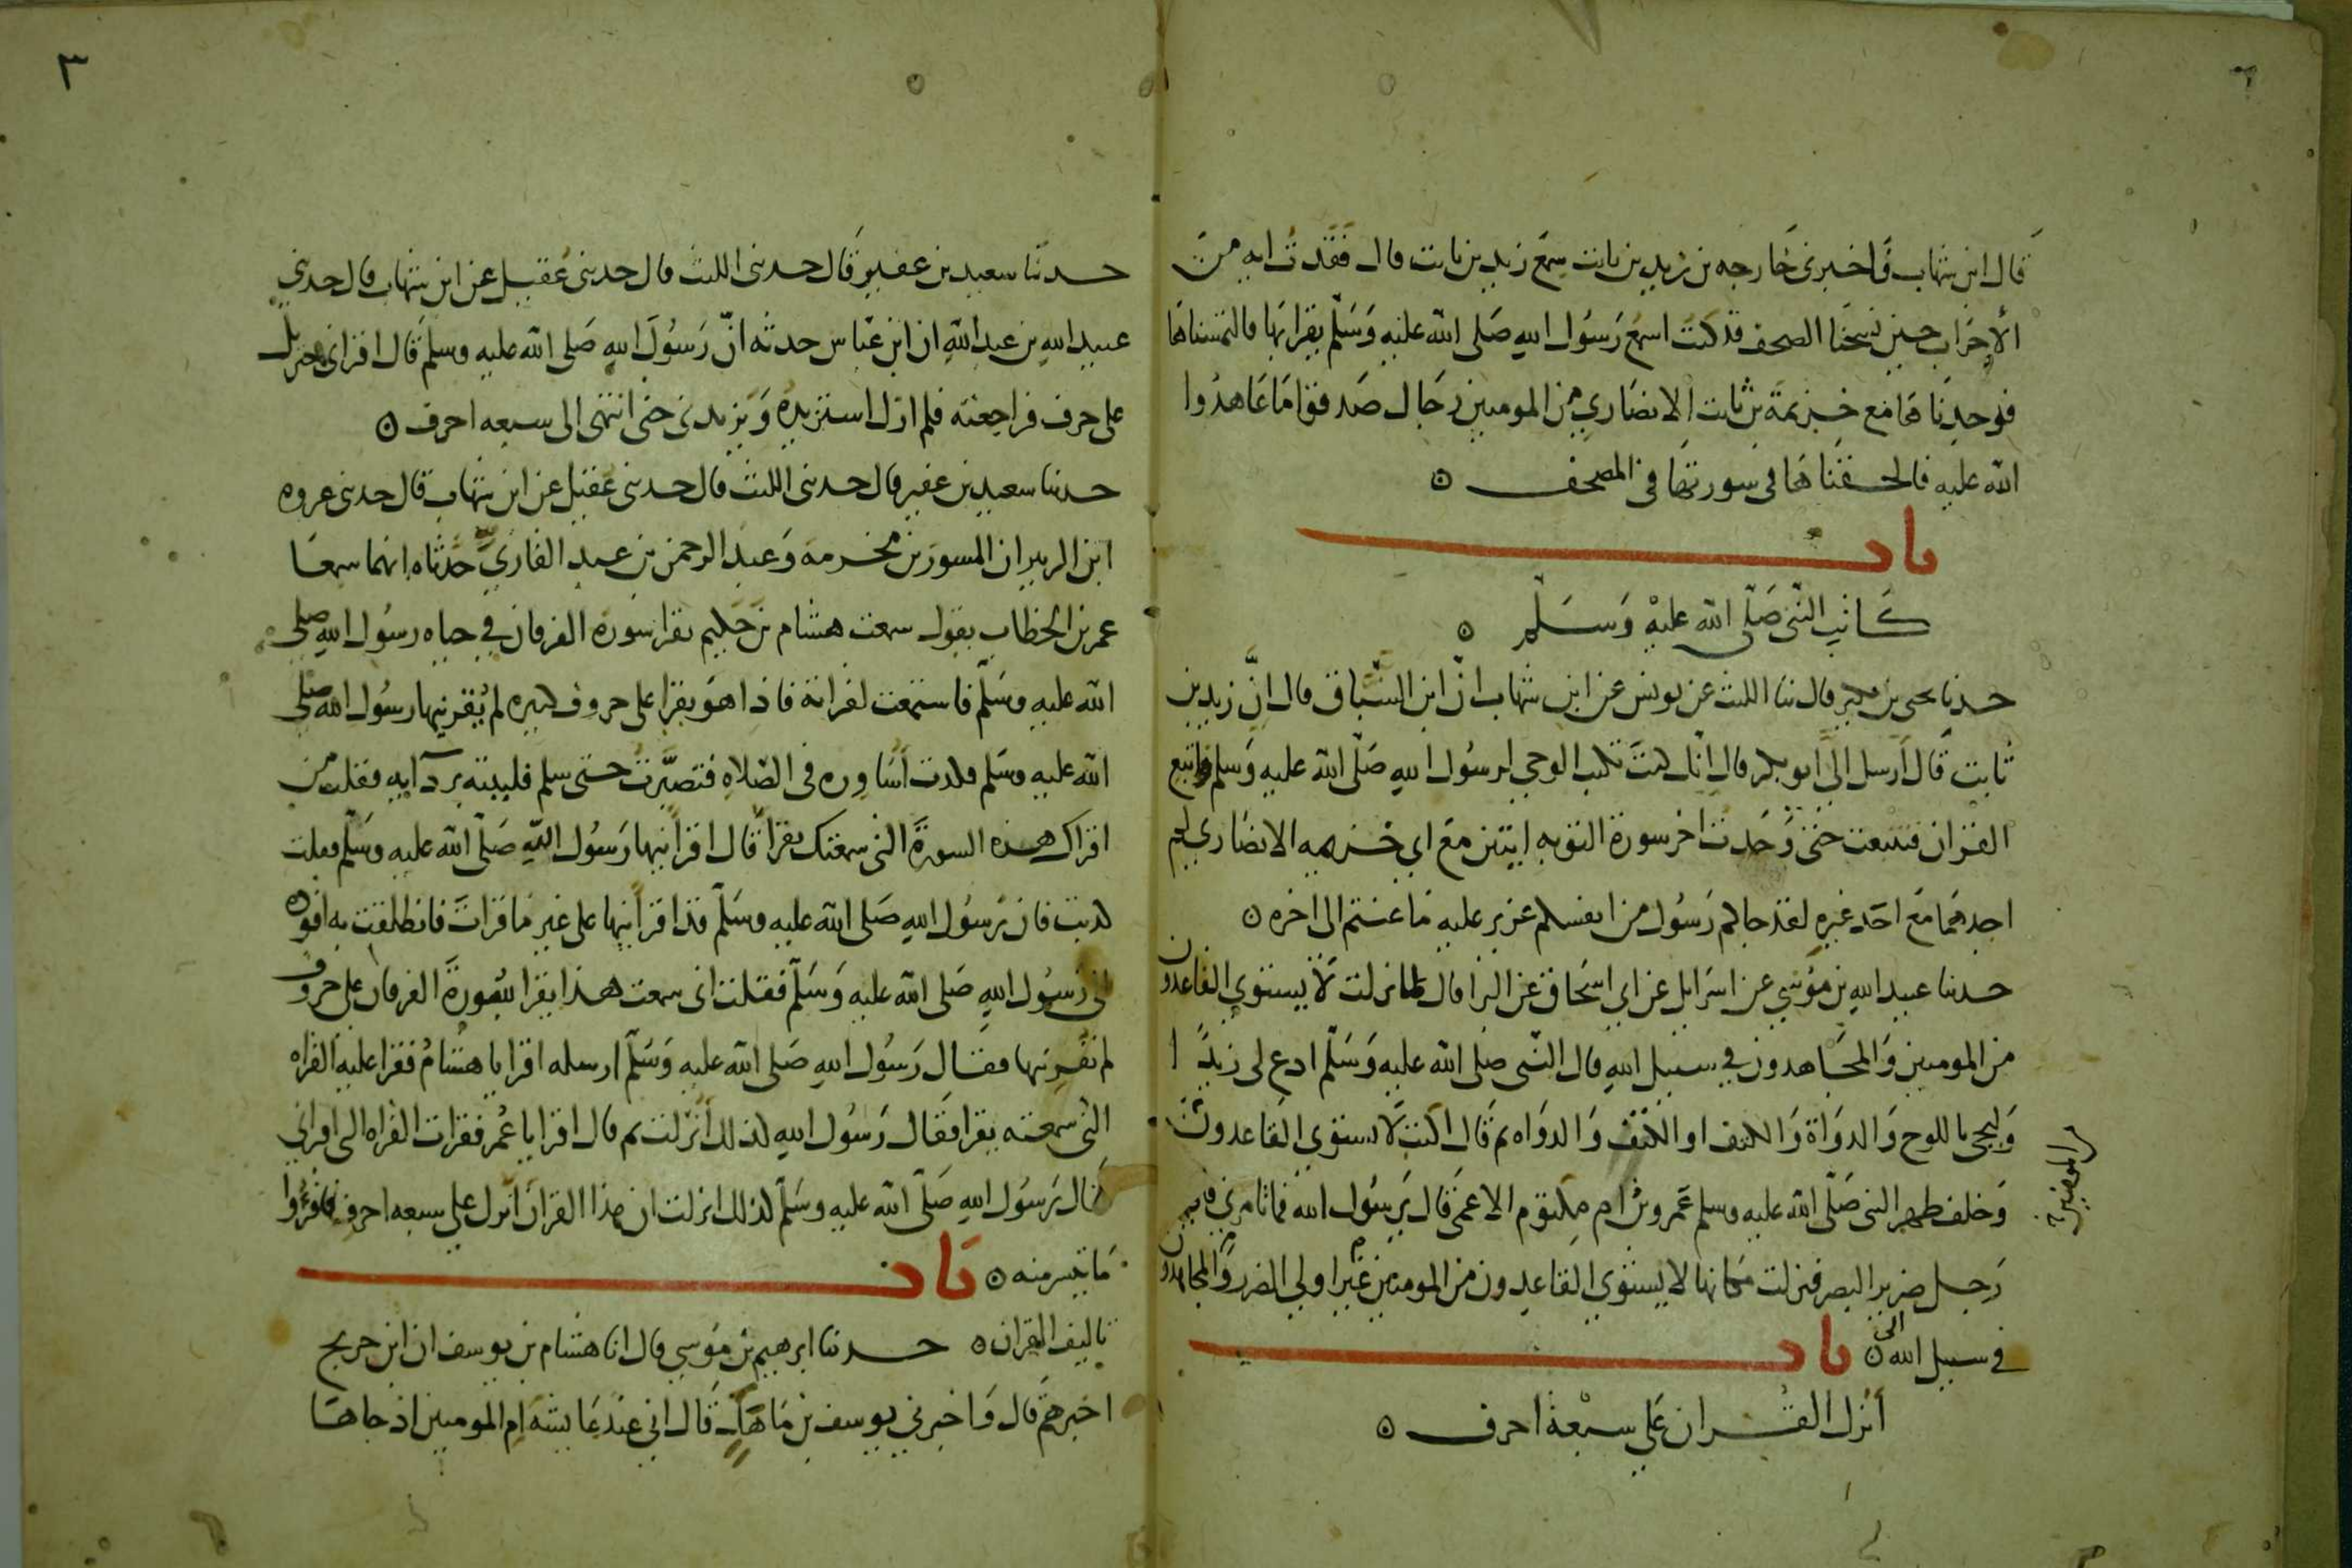 قال ابن شهاب وَاخبرنى خَارجه بن زيد بن ثابت سمع زيد بن ثابت قال فَقَدتُ ايه من
الأحزاب حين نسخنا الصحف قد كنت اسمع رَسُول الله صَلى الله عليه وَسَلّم يقرا بها فالتمسناها
فوجدنَاها مَع خزيمة بن ثابت الانصَاري من المومنين رجَال صَدقوا مَا عَاهدُوا
الله عليه فالحقنَاهَا فى سورتها فى المصحف ٥
باب
كَاتِب النّبى صَلّى الله عليْه وَسَلّم ٥
حدثنا يحيى بن بكير قال ثنا الليث عن يونس عن ابن شهاب انّ ابن السَّبّاق قال انّ زيد بن
ثابت قَال أرسل الىَّ ابو بكر قال انّك كنتَ تكتب الوحي لرسُول اللهِ صَلّى الله عليه وَسلم فاتبع
القران فتتبعت حتى وَجَدتُ اخر سورة التوبه ايتين مع ابي خزيمه الانصَاري لم
اجدهمَا مَع احَد غيره لقد جاكم رَسُول من انفسكم عزيز عليه مَا عنتم الى اخره ٥
حدثنا عبيد الله بن مُوسَي عن اسرَايل عن ابي اسحَاق عن البرا قال لما نزلت لَا يستوي القاعدون
من المومنين وَالمجَاهدون في سبيل اللهِ قال النّبى صلى الله عليه وَسَلّم ادع لى زيدًا
وَليجى باللوح وَالدوَاة وَالكتف او الكتف وَالدوَاه ثم قَال اكتب لَا يستوي القَاعدونَ
وَخلف ظهر النبى صَلّى الله عليه وسلم عَمرو بن ام مكتوم الاعمَى قَال يَرسُول الله فما تامرني فاني
المومنين
رَجل ضرير البصر فنزلت مكانها لا يستوي القاعدون من المومنين غَير اولي الضرر وَالمجاهدون
في سبيل الله ٥ باب
أنزل القران عَلى سبْعة احرف ٥
٣
حدثنا سعيد بن عفير قَال حدثنى الليث قال حدثنى عُقيل عن ابن شهاب قال حدثني
عبيد اللهِ بن عبد اللهِ ان ابن عبّاس حدثه انّ رَسُولَ اللهِ صَلى الله عليه وسلم قَال اقرانى جبريل
على حرف فراجعته فلم ازل استزيدُه وَيزيدنى حتى انتهى الى سبعه احرف ٥
حدثنا سعيد بن عفير قال حدثنى الليث قال حدثنى عُقيل عن ابن شهاب قال حدثنى عروه
ابن الزبير ان المسور بن مخرمة وَعبد الرحمن بن عبد القاريّ حَدثاه انهما سمعَا
عمر بن الخطاب يقول سمعت هشام بن حَكيم يقرا سورة الفرقان في حياه رسُول اللهِ صلى
الله عليه وسَلّم فاستمعت لقراته فاذا هوَ يقرا على حروف كثيره لم يُقرنيها رسُول الله صلى
الله عليه وسَلم فكدت أسَاوره فى الصّلاه فتصبَّرتُ حتى سلم فلببته بردآيه فقلت من
اقراك هذه السورةَ التى سمعتك تقرا قَال اقرأنيها رَسُول اللهِ صَلّى الله عليه وسَلّم فقلت
كذبت فان رَسُول اللهِ صَلى الله عليه وسَلّم قد اقرأنيها على غير مَا قراتَ فانطلقت به اقوده
الى رَسُول اللهِ صَلى الله عليه وَسَلّم فقلت انى سمعت هذا يقرا بسُورةَ الفرقان على حروف
لم تُقرنيها فقَال رَسُول اللهِ صَلى الله عليه وَسَلّم ارسله اقرا يا هشامُ فقرا عليه القراه
التى سمعته يقرا فقَال رَسُول اللهِ كذلك أُنزلت ثم قال اقرا يا عُمر فقرات القراه التى اقرانى
فقَال رَسُول اللهِ صَلّى الله عليه وسَلّم كذلك انزلت ان هذا القرانَ أنزل على سبعه احرف فاقرُوا
مَا تيسر منه ٥ بَاب
تاليف القران ٥ حدثنا ابرهيم بن مُوسى قال انا هشام بن يوسف ان ابن جريج
اخبرهم قَال وَاخبرني يوسف بن مَاهَك قَال انى عند عَايشَة ام المومنين اذ جاهَا